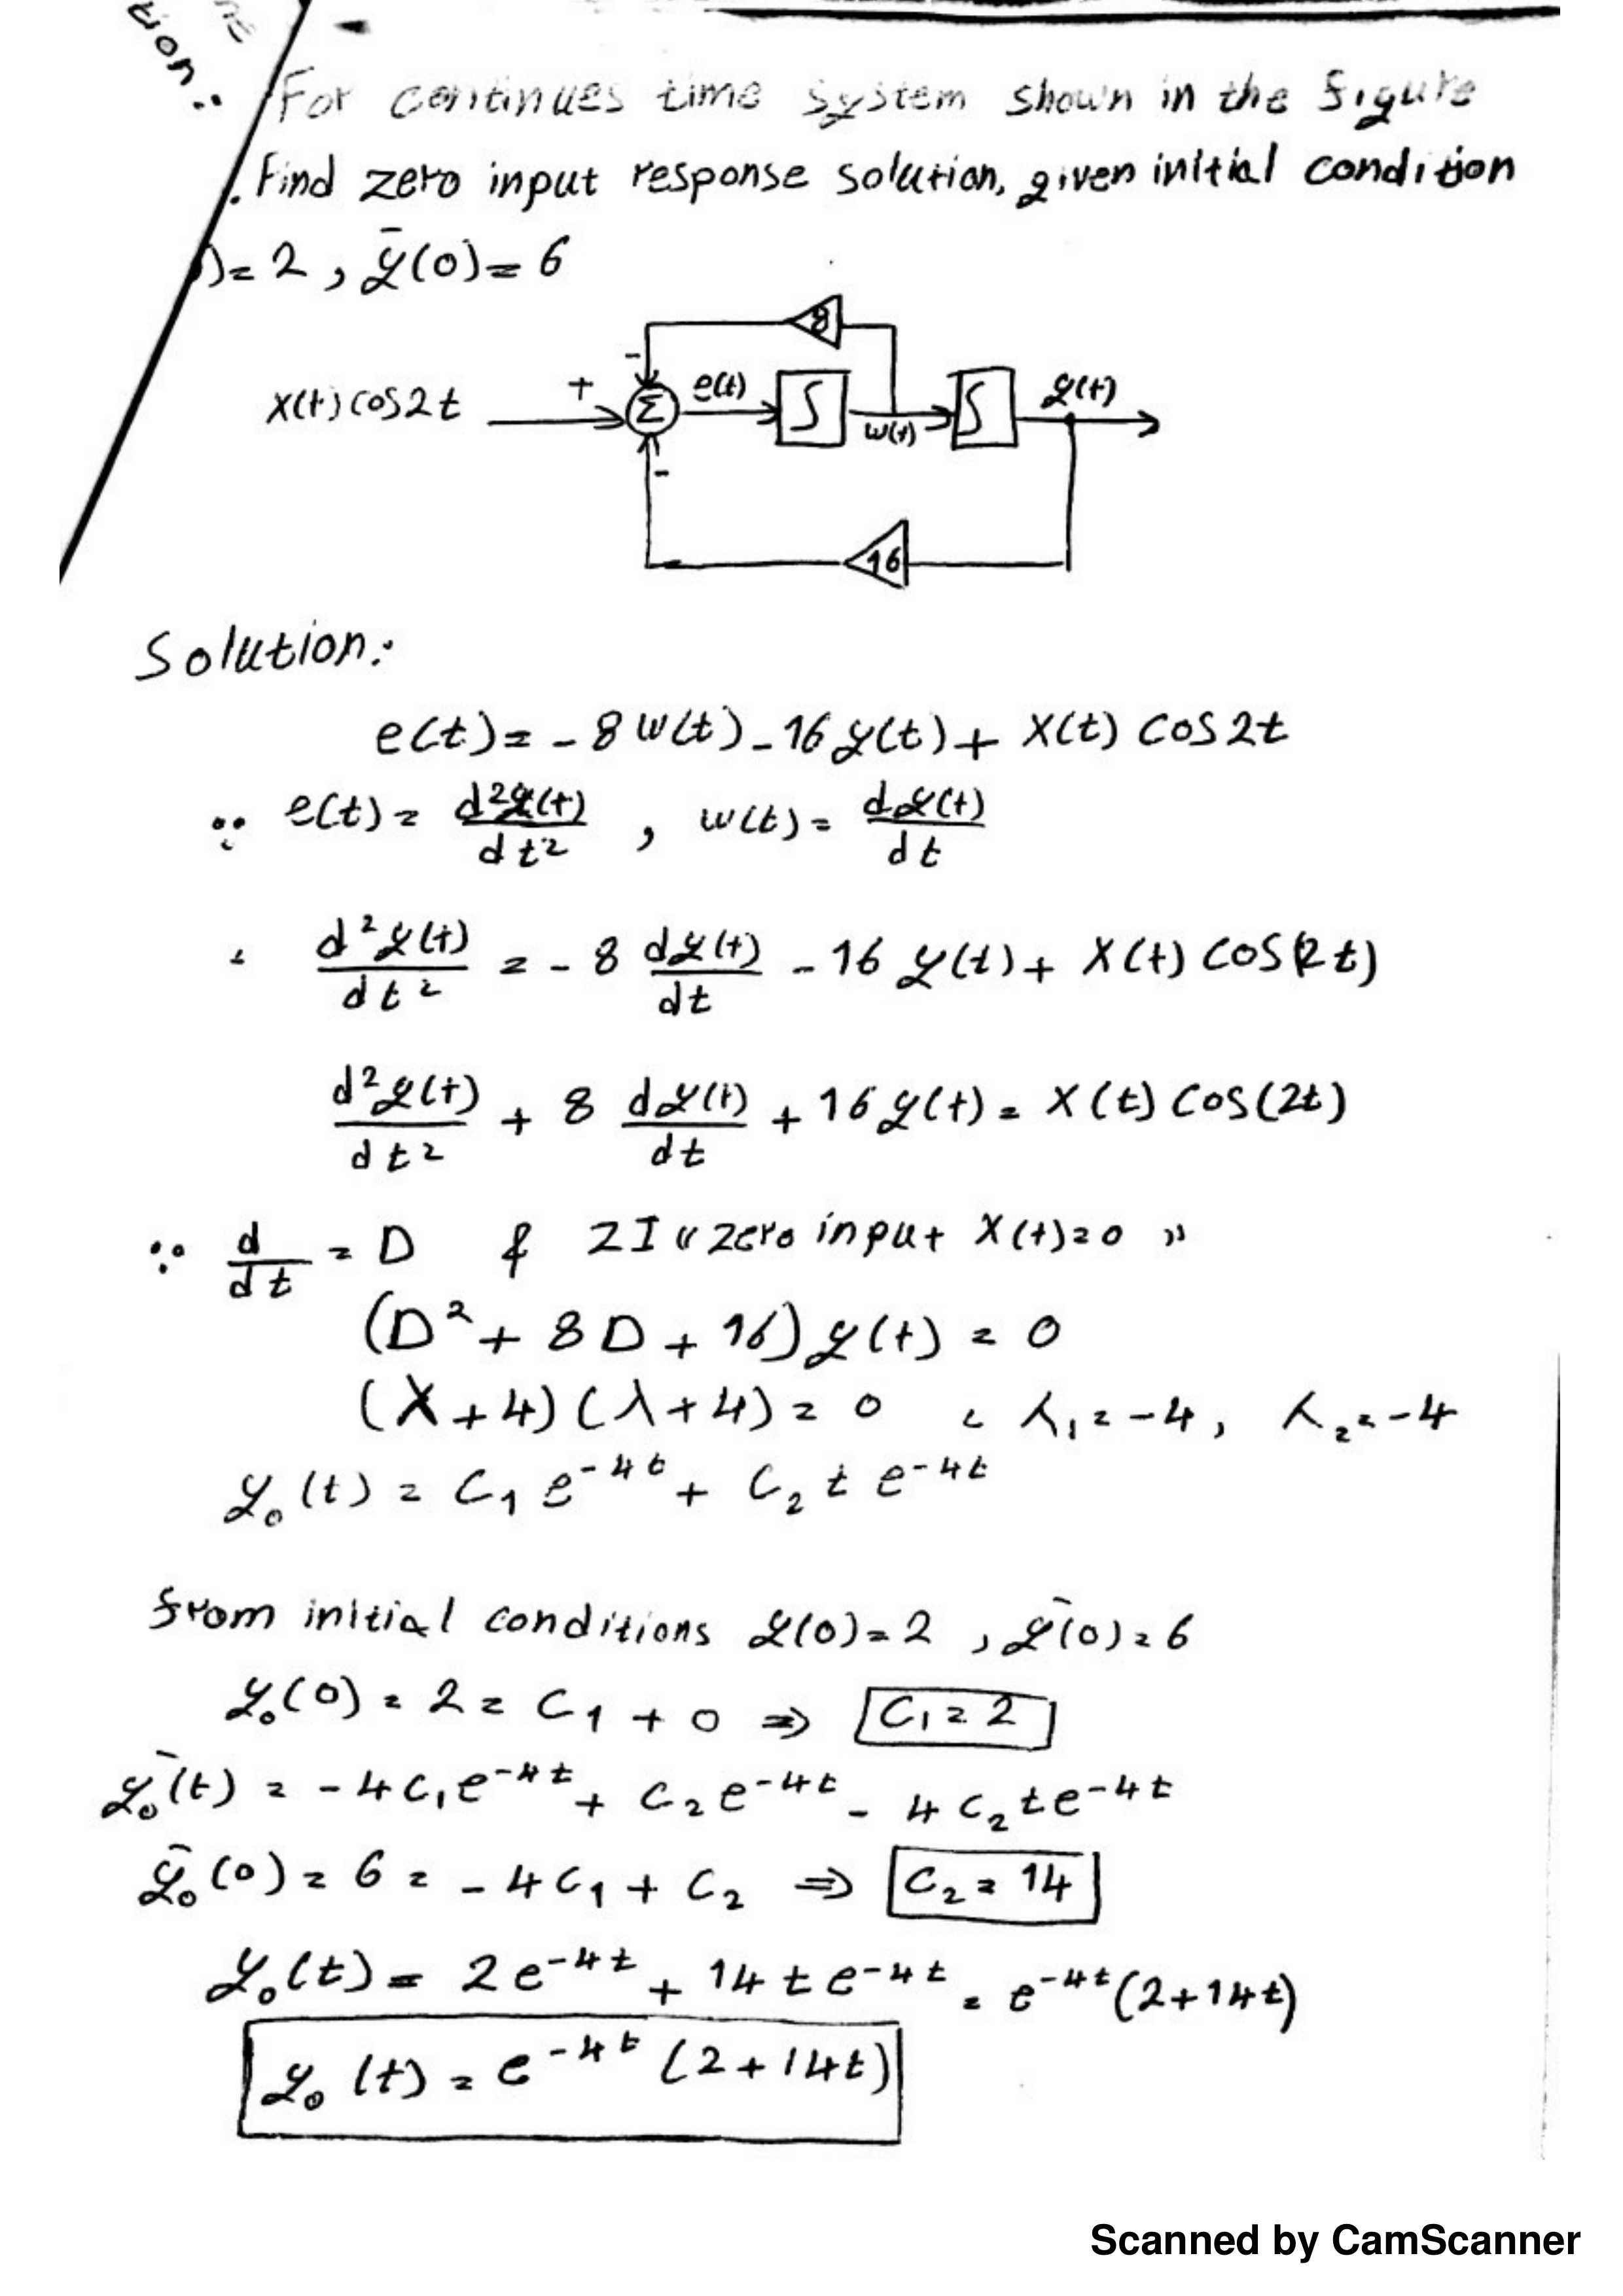 tion:
For continues time system shown in the figure
. Find zero input response solution, given initial condition
)= 2 , ȳ(0)= 6
8
- 
X(t) cos2t + Σ e(t) ∫ w(t) ∫ y(t)
-
16
Solution:
e(t)= - 8 w(t) - 16 y(t) + X(t) cos 2t
∵ e(t) = d²y(t)/dt² , w(t) = dy(t)/dt
∴ d²y(t)/dt² = - 8 dy(t)/dt - 16 y(t) + X(t) cos(2t)
d²y(t)/dt² + 8 dy(t)/dt + 16 y(t) = X(t) cos(2t)
∵ d/dt = D & ZI "zero input X(t)=0 "
(D² + 8D + 16) y(t) = 0
(λ+4)(λ+4) = 0 ∴ λ₁ = -4, λ₂ = -4
y₀(t) = C₁ e⁻⁴ᵗ + C₂ t e⁻⁴ᵗ
from initial conditions y(0)= 2 , ȳ(0) = 6
y₀(0) = 2 = C₁ + 0 ⇒ C₁ = 2
ȳ₀(t) = -4C₁e⁻⁴ᵗ + C₂e⁻⁴ᵗ - 4C₂te⁻⁴ᵗ
ȳ₀(0) = 6 = -4C₁ + C₂ ⇒ C₂ = 14
y₀(t) = 2e⁻⁴ᵗ + 14te⁻⁴ᵗ = e⁻⁴ᵗ(2+14t)
y₀(t) = e⁻⁴ᵗ (2+14t)
Scanned by CamScanner